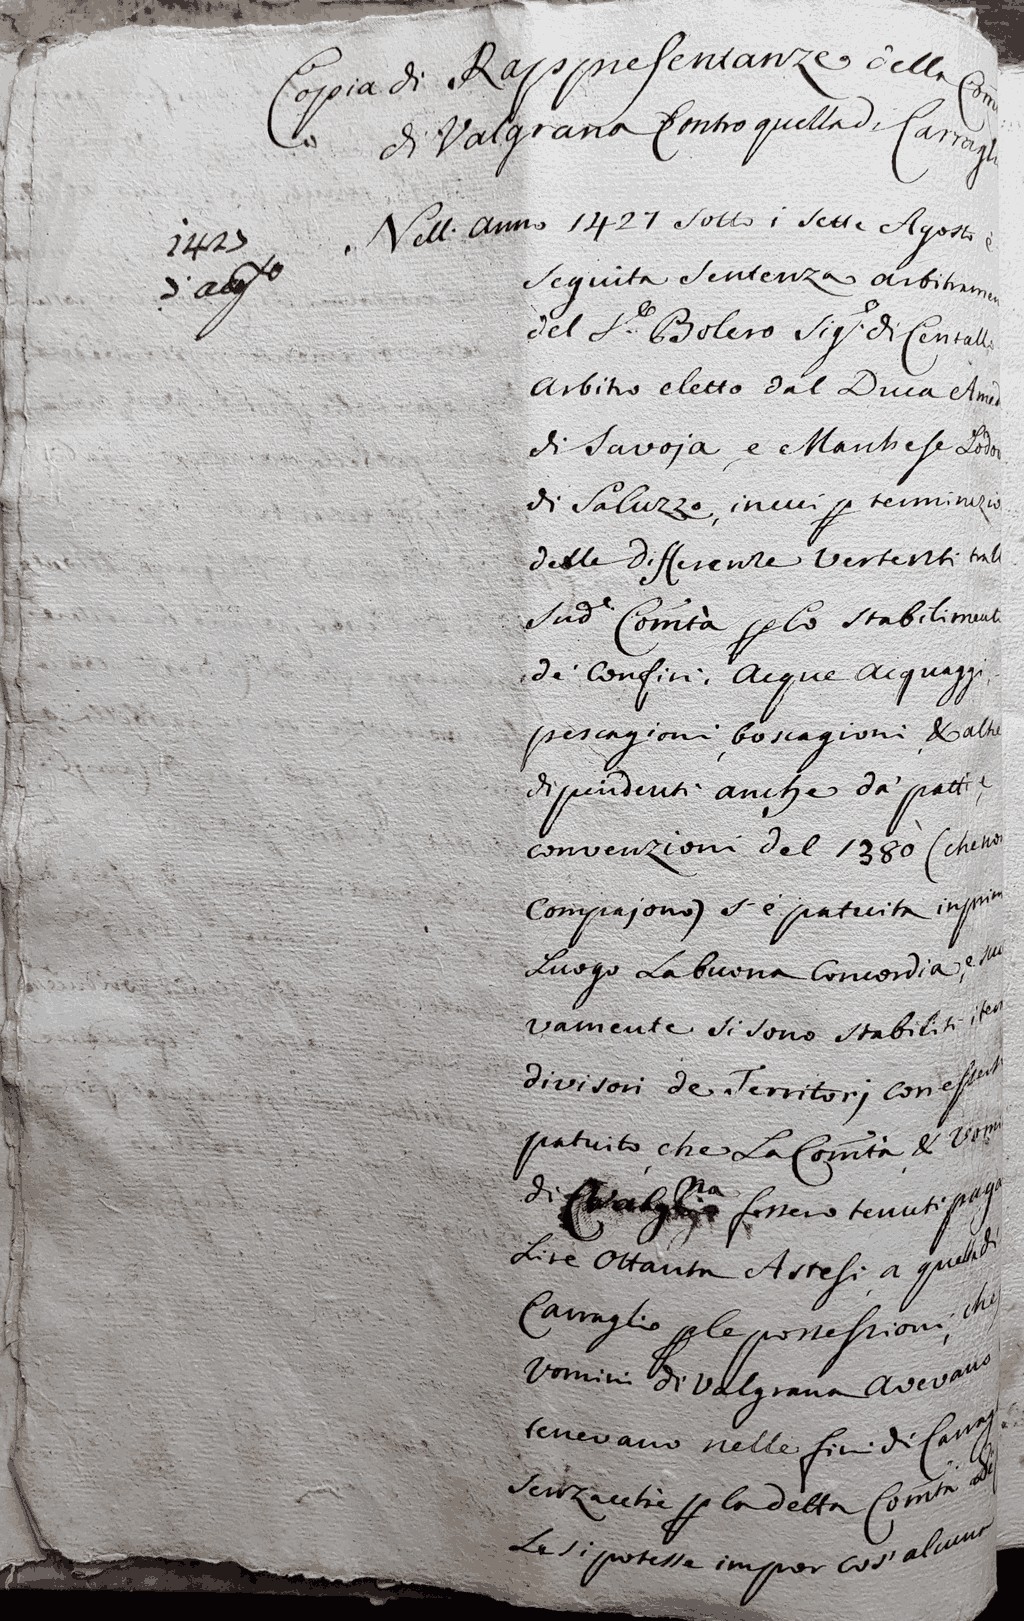 Copia di Rappresentanze della Com
di Valgrana Contro quella di Carragli
1427
7 agto
Nell' anno 1427 sotto i sette Agosto è
seguita sentenza arbitramen
del Sr Bolero Sigr di Centall
Arbitro eletto dal Duca Amed
di Savoja e Marchese Lodov
di Saluzzo, in cui p terminazio
delle differenze vertenti trall
sude Comtà p lo stabiliment
de' Confini, Acque Acquaggi,
pescagioni, boscagioni, & altre
dipendenti anche da' patti e
convenzioni del 1380 (che non
Compajono) s'è patuita in prim
Luogo La buona Concordia, e suc
vamente si sono stabiliti i ter
divisori de Territorj con essersi
patuito, che La Comtà, & Vom
di Valgna fossero tenuti paga
Lire Ottanta Astesi a quella di
Carraglio p le possessioni, che
Vomini di Valgrana Avevano
tenevano nelle fini di Carrag
senzacchè p la detta Comtà di
Le si potesse impor cos' alcuna